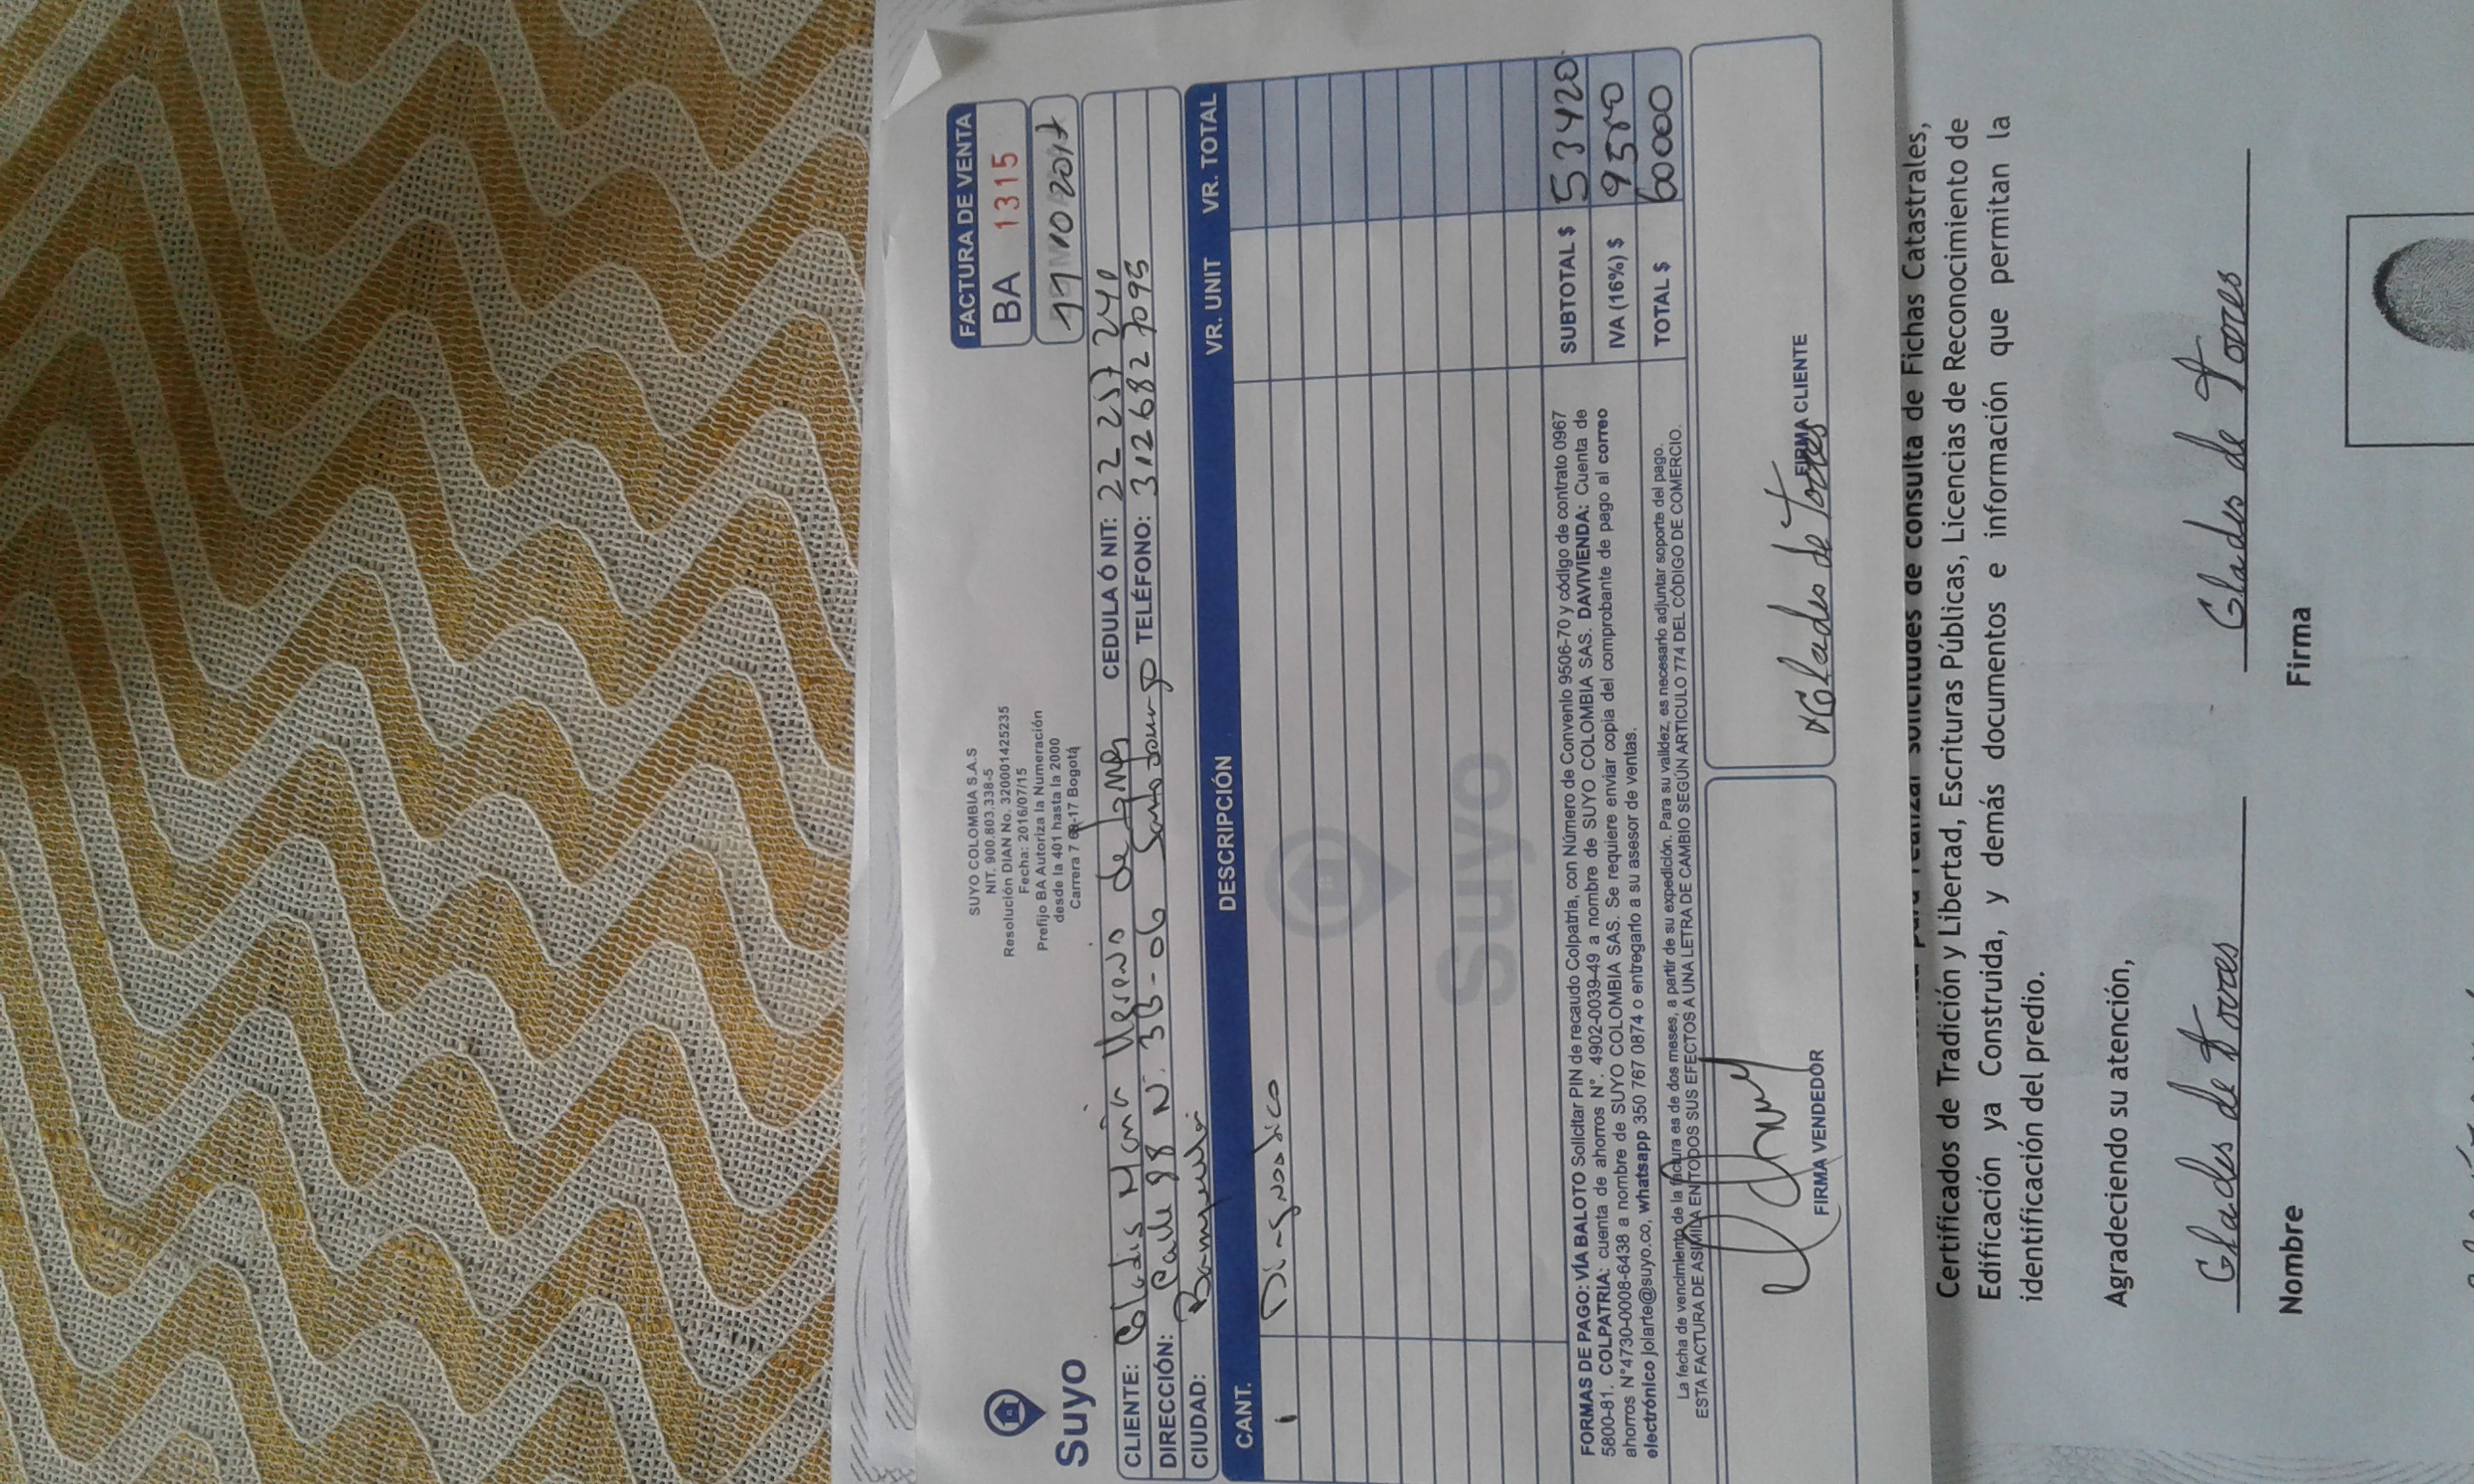 Suyo
SUYO COLOMBIA S.A.S
NIT. 900.803.338-5
Resolución DIAN No. 320001425235
Fecha: 2016/07/15
Prefijo BA Autoriza la Numeración
desde la 401 hasta la 2000
Carrera 7 69-17 Bogotá
FACTURA DE VENTA
BA 1315
11 10 2017
CLIENTE: Gladis Maria de Torres CEDULA Ó NIT: 22 257 240
DIRECCIÓN: Calle 88 N. 3B-06 Santo Domingo TELÉFONO: 3126827095
CIUDAD:
CANT. DESCRIPCIÓN VR. UNIT VR. TOTAL
1 Diagnostico
Suyo
FORMAS DE PAGO: VÍA BALOTO Solicitar PIN de recaudo Colpatria, con Número de Convenio 9506-70 y código de contrato 0967
5800-81. COLPATRIA: cuenta de ahorros N°. 4902-0039-49 a nombre de SUYO COLOMBIA SAS. DAVIVIENDA: Cuenta de
ahorros N°4730-0008-6438 a nombre de SUYO COLOMBIA SAS. Se requiere enviar copia del comprobante de pago al correo
electrónico jolarte@suyo.co, whatsapp 350 767 0874 o entregarlo a su asesor de ventas.
SUBTOTAL $ 53420
IVA (16%) $ 9580
TOTAL $ 60000
La fecha de vencimiento de la factura es de dos meses, a partir de su expedición. Para su validez, es necesario adjuntar soporte del pago.
ESTA FACTURA DE ASIMILA EN TODOS SUS EFECTOS A UNA LETRA DE CAMBIO SEGÚN ARTICULO 774 DEL CÓDIGO DE COMERCIO.
FIRMA VENDEDOR
x Glades de Torres FIRMA CLIENTE
para realizar solicitudes de consulta de Fichas Catastrales,
Certificados de Tradición y Libertad, Escrituras Públicas, Licencias de Reconocimiento de
Edificación ya Construida, y demás documentos e información que permitan la
identificación del predio.
Agradeciendo su atención,
Glades de Torres Glades de Torres
Nombre Firma